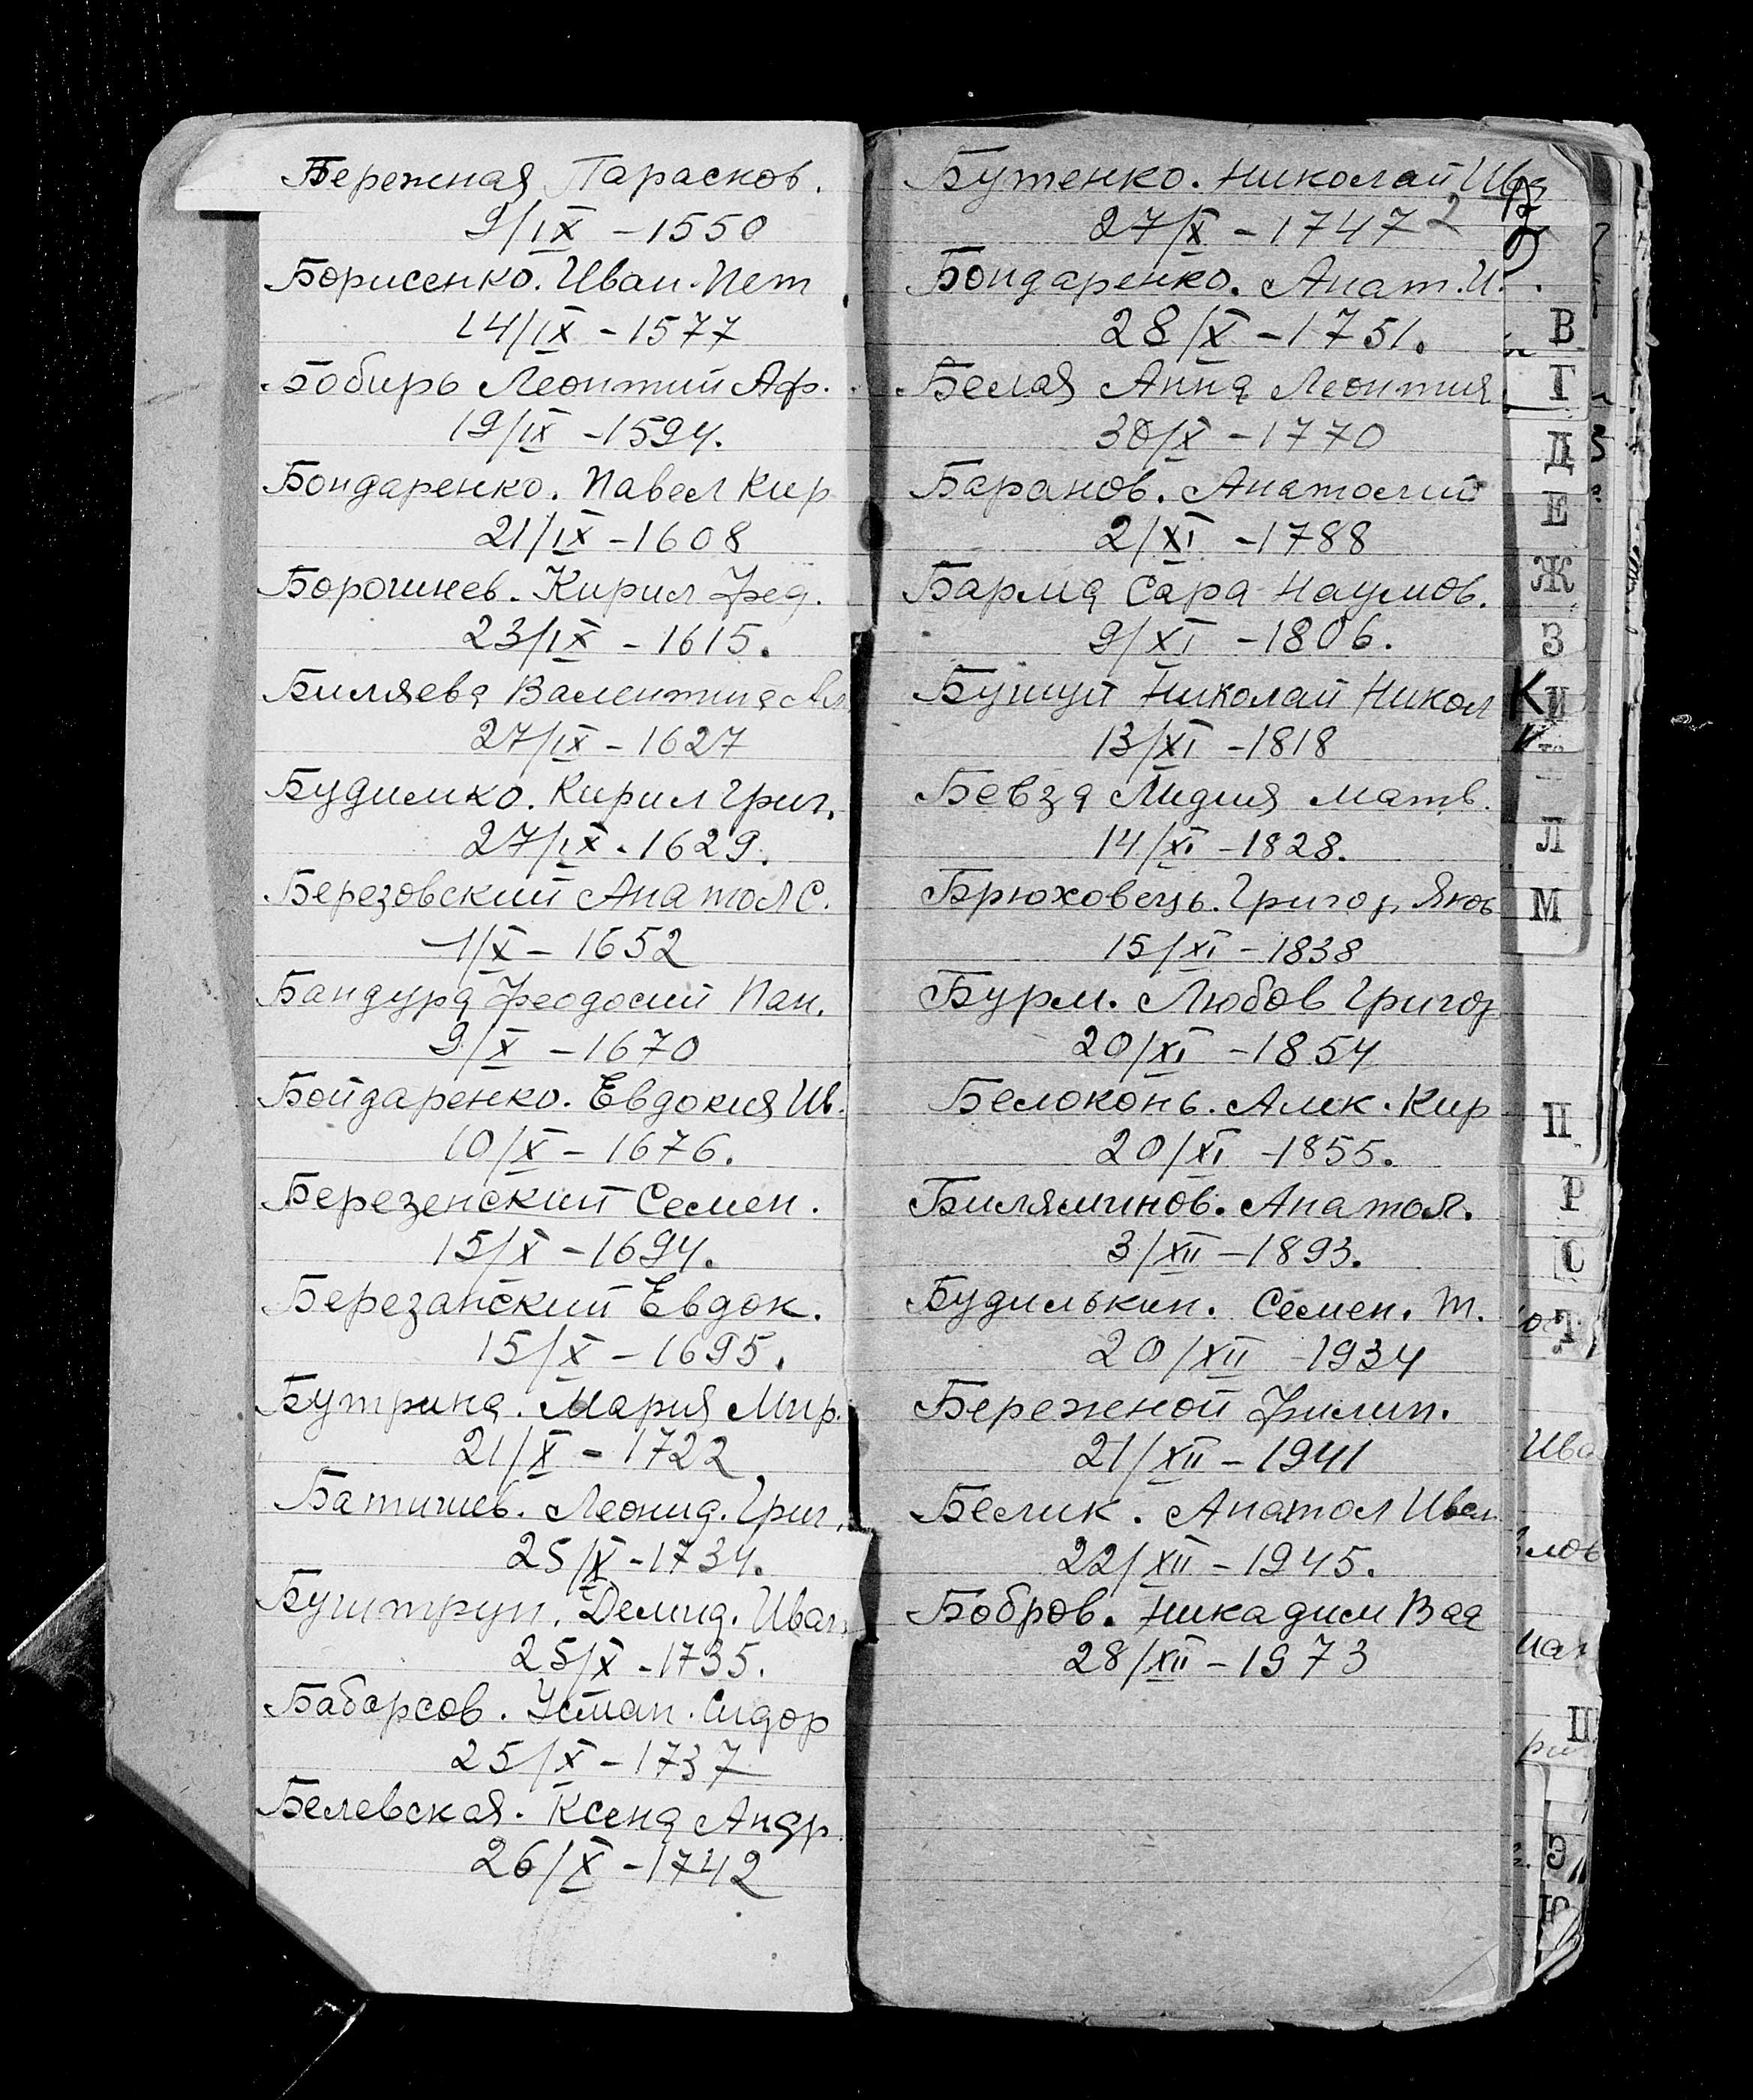 Бережная Парасков.
9/IX - 1550
Борисенко. Иван. Пет
14/IX - 1577
Бобирь Леонтий Аф.
19/IX - 1594.
Бондаренко. Павел Кир
21/IX - 1608
Борошнев. Кирил Фед.
23/IX - 1615.
Биляева Валентина
27/IX - 1627
Будимко. Кирил Григ.
27/IX - 1629.
Березовский Анатол С.
1/X - 1652
Бандура Феодосий Пан.
9/X - 1670
Бойдаренко. Евдокия Ив.
10/X - 1676.
Березенский Семен.
15/X - 1694.
Березанский Евдок.
15/X - 1695.
Бутрина. Мария Мир.
21/X - 1722
Батичиев. Леонид. Григ.
25/X - 1734.
Буштрун. Демид. Иван
25/X - 1735.
Баборсов. Устиан. Сидор
25/X - 1737
Белевская. Ксена Андр.
26/X - 1742
Бутенко. Николай Ив
27/X - 1747 2
Бондаренко. Анат. И.
28/X - 1751.
Белая Анна Леонтия
30/X - 1770
Баранов. Анатолий
2/XI - 1788
Барма Сара Наумов.
9/XI - 1806.
Бушуй Николай Никол
13/XI - 1818
Бевза Лидия Матв.
14/XI - 1828.
Брюховець. Григор. Яков
15/XI - 1838
Бурм. Любов Григор
20/XI - 1854
Белоконь. Алек. Кир
20/XI - 1855.
Биляминов. Анатол.
3/XII - 1893.
Будилькин. Семен. Т.
20/XII 1934
Бережной Филип.
21/XII - 1941
Белик. Анатол Иван
22/XII - 1945.
Бобров. Никадим Вас
28/XII - 1973
В
Г
Д
Е
Ж
З
К И
Л
М
П
Р
С
Т
Ива
Э
Ю